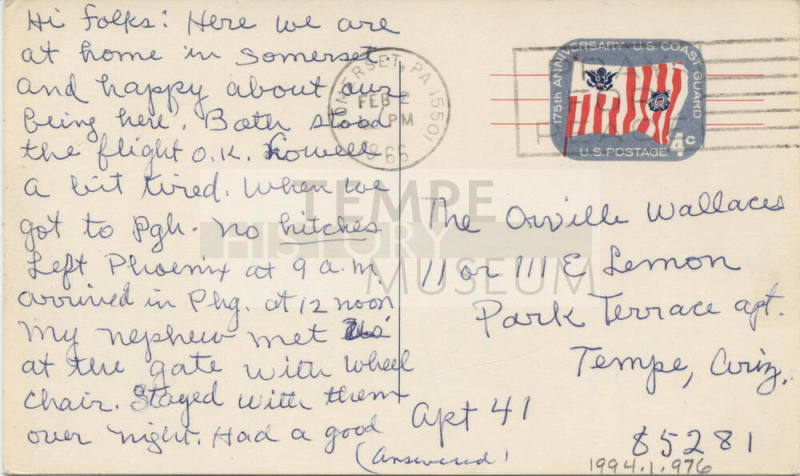 Hi Folks: Here we are
at home in Somerset.
and happy about our
being here. Both stood
the flight O.K. Lowell
a bit tired. When we
got to Pgh. no hitches
Left Phoenix at 9 a.m
arrived in Phg. at 12 noon
My nephew met us
at the gate with wheel
chair. Stayed with them
over night. Had a good
SOMERSET, PA 15501
FEB 2
PM
1966
175th ANNIVERSARY U.S. COAST GUARD
U.S. POSTAGE 4c
PRAY
FOR
PEACE
The Orville Wallaces
11 or 111 E Lemon
Park Terrace apt.
Tempe, Ariz.
Apt 41
85281
(answered)
1994.1.976
TEMPE
HISTORY
MUSEUM